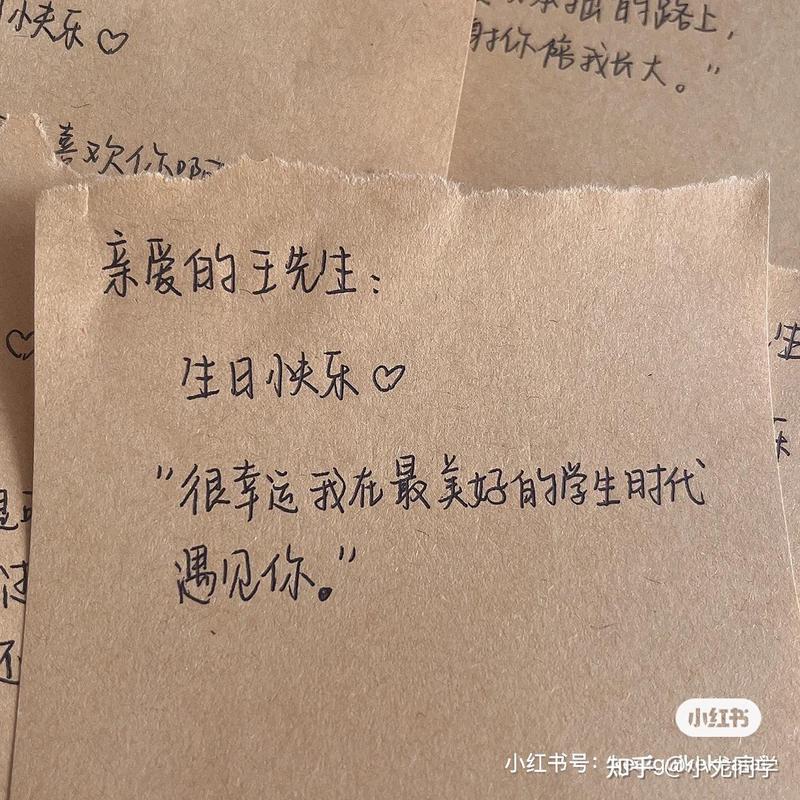 快乐♡
的路上,
你陪我长大。"
喜欢你
亲爱的王先生:
生日快乐♡
"很幸运我在最美好的学生时代
遇见你。"
♡
生
乐
还
小红书
小红书号:
知乎 @小龙同学